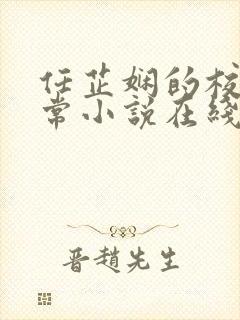 任芷娴的校
常小説在綫
晋趙先生